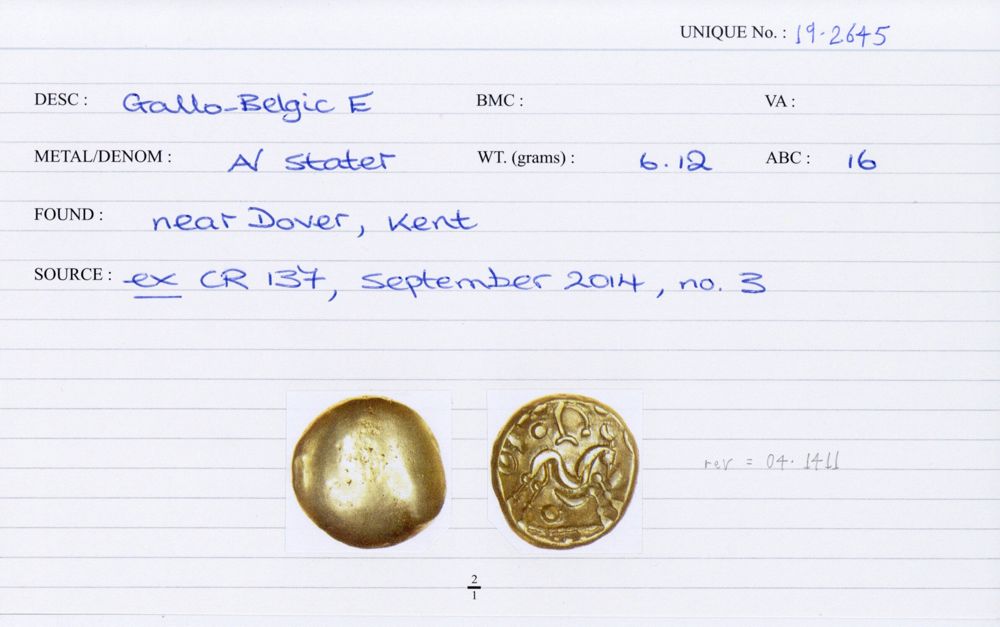 UNIQUE No. : 19-2645
DESC : Gallo-Belgic E BMC : VA :
METAL/DENOM : AV stater WT. (grams) : 6.12 ABC : 16
FOUND : near Dover, Kent
SOURCE : ex CR 137, September 2014, no. 3
rev = 04.1411
2
1